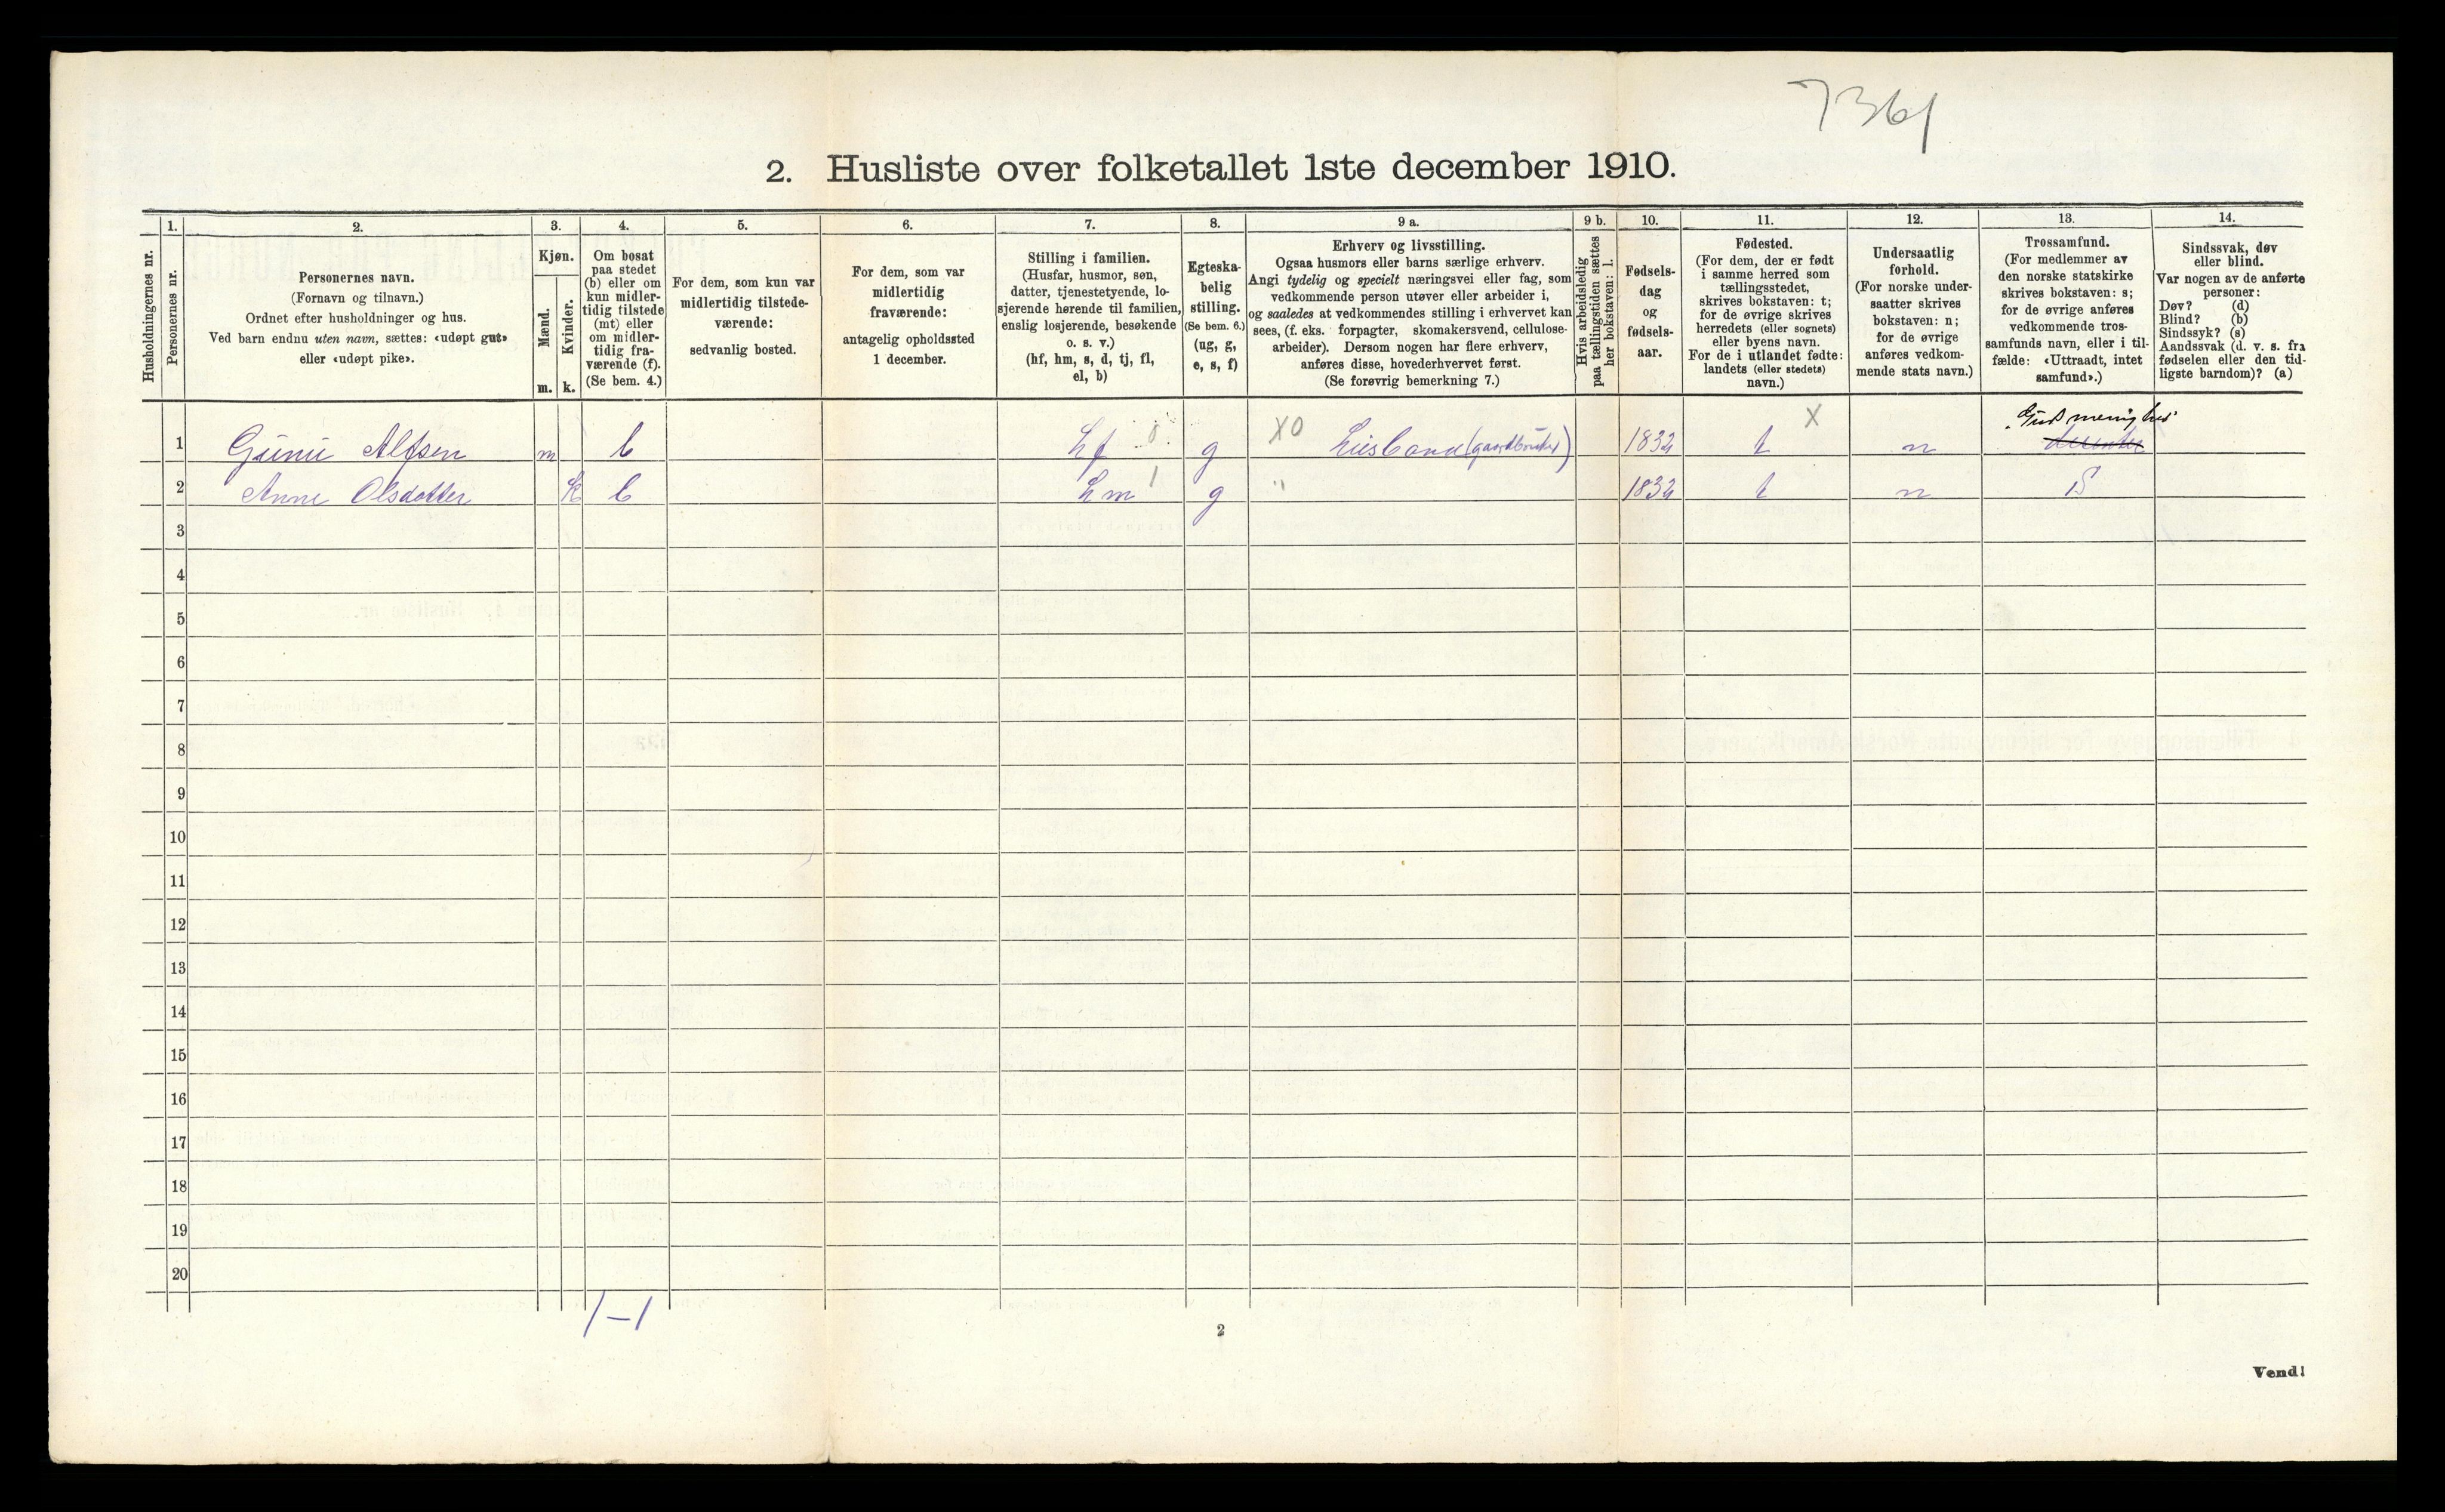 7361
2. Husliste over folketallet 1ste december 1910.
Husholdningernes nr.
1.
Personernes nr.
2.
Personernes navn.
(Fornavn og tilnavn.)
Ordnet efter husholdninger og hus.
Ved barn endnu uten navn, sættes: «udøpt gut»
eller «udøpt pike».
3.
Kjøn.
Mænd.
m.
Kvinder.
k.
4.
Om bosat
paa stedet
(b) eller om
kun midler-
tidig tilstede
(mt) eller
om midler-
tidig fra-
værende (f).
(Se bem. 4.)
5.
For dem, som kun var
midlertidig tilstede-
værende:
sedvanlig bosted.
6.
For dem, som var
midlertidig
fraværende:
antagelig opholdssted
1 december.
7.
Stilling i familien.
(Husfar, husmor, søn,
datter, tjenestetyende, lo-
sjerende hørende til familien,
enslig losjerende, besøkende
o. s. v.)
(hf, hm, s, d, tj, fl,
el, b)
8.
Egteska-
belig
stilling.
(Se bem. 6.)
(ug, g,
e, s, f)
9 a.
Erhverv og livsstilling.
Ogsaa husmors eller barns særlige erhverv.
Angi tydelig og specielt næringsvei eller fag, som
vedkommende person utøver eller arbeider i,
og saaledes at vedkommendes stilling i erhvervet kan
sees, (f. eks. forpagter, skomakersvend, cellulose-
arbeider). Dersom nogen har flere erhverv,
anføres disse, hovederhvervet først.
(Se forøvrig bemerkning 7.)
9 b.
Hvis arbeidsledig
paa tællingstiden sættes
her bokstaven: l.
10.
Fødsels-
dag
og
fødsels-
aar.
11.
Fødested.
(For dem, der er født
i samme herred som
tællingsstedet,
skrives bokstaven: t;
for de øvrige skrives
herredets (eller sognets)
eller byens navn.
For de i utlandet fødte:
landets (eller stedets)
navn.)
12.
Undersaatlig
forhold.
(For norske under-
saatter skrives
bokstaven: n;
for de øvrige
anføres vedkom-
mende stats navn.)
13.
Trossamfund.
(For medlemmer av
den norske statskirke
skrives bokstaven: s;
for de øvrige anføres
vedkommende tros-
samfunds navn, eller i til-
fælde: «Uttraadt, intet
samfund».)
14.
Sindssvak, døv
eller blind.
Var nogen av de anførte
personer:
Døv? (d)
Blind? (b)
Sindssyk? (s)
Aandssvak (d. v. s. fra
fødselen eller den tid-
ligste barndom)? (a)
1 Gunu Alfsen m b hf 0 g X0 Liesband (gaardbruker) 1832 t X n
2 Anne Olsdatter k b hm 1 g " 1832 t n S
3
4
5
6
7
8
9
10
11
12
13
14
15
16
17
18
19
20
1-1
2
Vend!